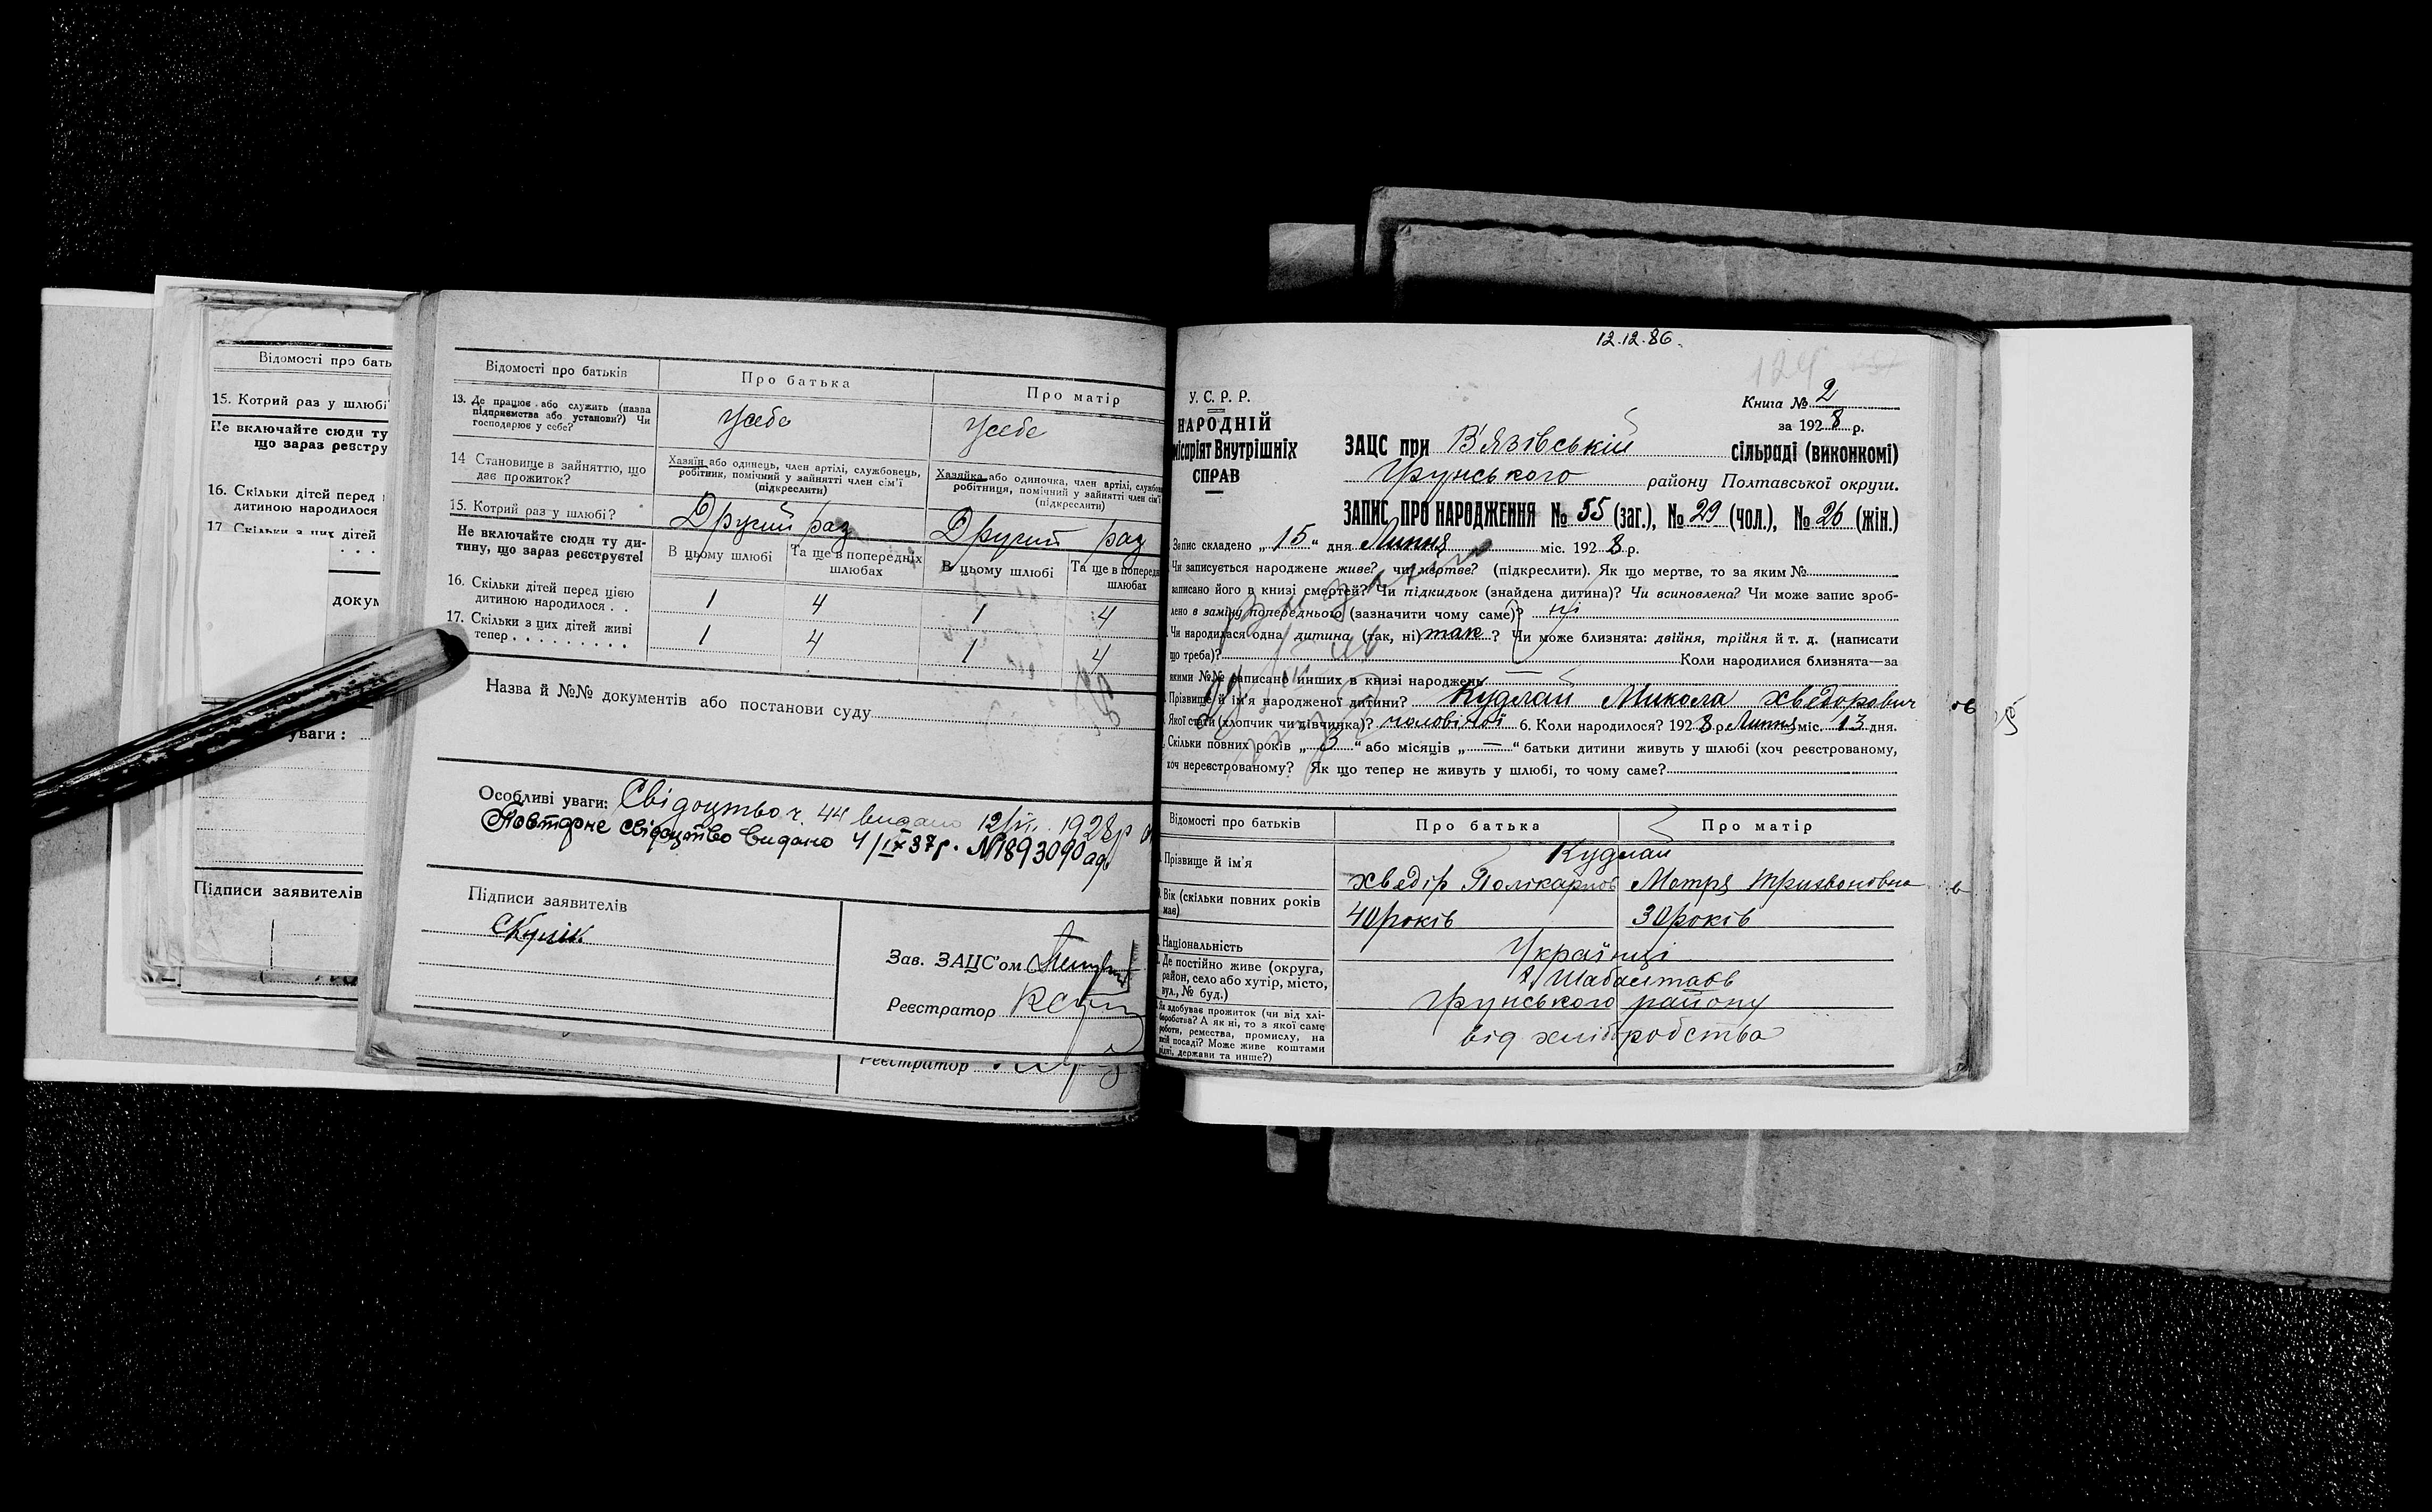 Відомості про бать
15. Котрий раз у шлюбі
Не включайте сюди ту
що зараз реєстру
16. Скільки дітей перед
дитиною народилося
17. Скільки з цих дітей
докум
уваги:
Підписи заявителів
Відомості про батьків
Про батька
Про матір
13. Де працює або служить (назва
підприємства або установи?) Чи
господарює у себе?
Усебе
Усебе
14 Становище в зайняттю, що
дає прожиток?
Хазяїн або одинець, член артілі, службовець,
робітник, помічний у зайнятті член сім'ї
(підкреслити)
Хазяйка або одиночка, член артілі, службов
робітниця, помічний у зайнятті член сім'ї
(підкреслити)
15. Котрий раз у шлюбі?
Другий раз
Другий раз
Не включайте сюди ту ди-
тину, що зараз реєструєте!
В цьому шлюбі
Та ще в попередніх
шлюбах
В цьому шлюбі
Та ще в поперед
шлюбах
16. Скільки дітей перед цією
дитиною народилося . .
1 4 1 4
17. Скільки з цих дітей живі
тепер . . . . . . . . .
1 4 1 4
Назва й №№ документів або постанови суду
Особливі уваги: Свідоцтво ч. 44 видано 12/VII 1928р
Повторне свідоцтво видано 4/IX 37р. №1893090
Підписи заявителів
Зав. ЗАЦС'ом
Реєстратор
Реєстратор
12.12.86.
124
Книга № 2
за 1928 р.
У. С. Р. Р.
НАРОДНІЙ
місаріят Внутрішніх
СПРАВ
ЗАЦС при В'язівській сільраді (виконкомі)
Грунського району Полтавської округи.
ЗАПИС ПРО НАРОДЖЕННЯ № 55 (заг.), № 29 (чол.), № 26 (жін.)
Запис складено „15“ дня Липня міс. 1928 р.
Чи записується народжене живе? чи мертве? (підкреслити). Як що мертве, то за яким №
записано його в книзі смертей? Чи підкидьок (знайдена дитина)? Чи всиновлена? Чи може запис зроб-
лено в заміну попереднього (зазначити чому саме)? ні
Чи народилася одна дитина (так, ні) так? Чи може близнята: двійня, трійня й т. д. (написати
що треба)? Коли народилися близнята—за
якими №№ записано инших в книзі народжень —
Прізвище й ім'я народженої дитини? Кудлай Микола Хведорович
Якої статі (хлопчик чи дівчинка)? чоловічої 6. Коли народилося? 1928 р. Липня міс. 13 дня.
Скільки повних років „3“ або місяців „—“ батьки дитини живуть у шлюбі (хоч реєстрованому,
хоч нереєстрованому? Як що тепер не живуть у шлюбі, то чому саме?
Відомості про батьків
Про батька
Про матір
Прізвище й ім'я
Кудлай
Хведір Полікарпов
Мотря Тризвоновна
Вік (скільки повних років
має)
40 років
30 років
Національність
Українці
Де постійно живе (округа,
район, село або хутір, місто,
вул., № буд.)
Грунського району
Як здобуває прожиток (чи від хлі-
боробства? А як ні, то з якої саме
роботи, ремества, промислу, на
якій посаді? Може живе коштами
рідні, держави та инше?)
від хліборобства